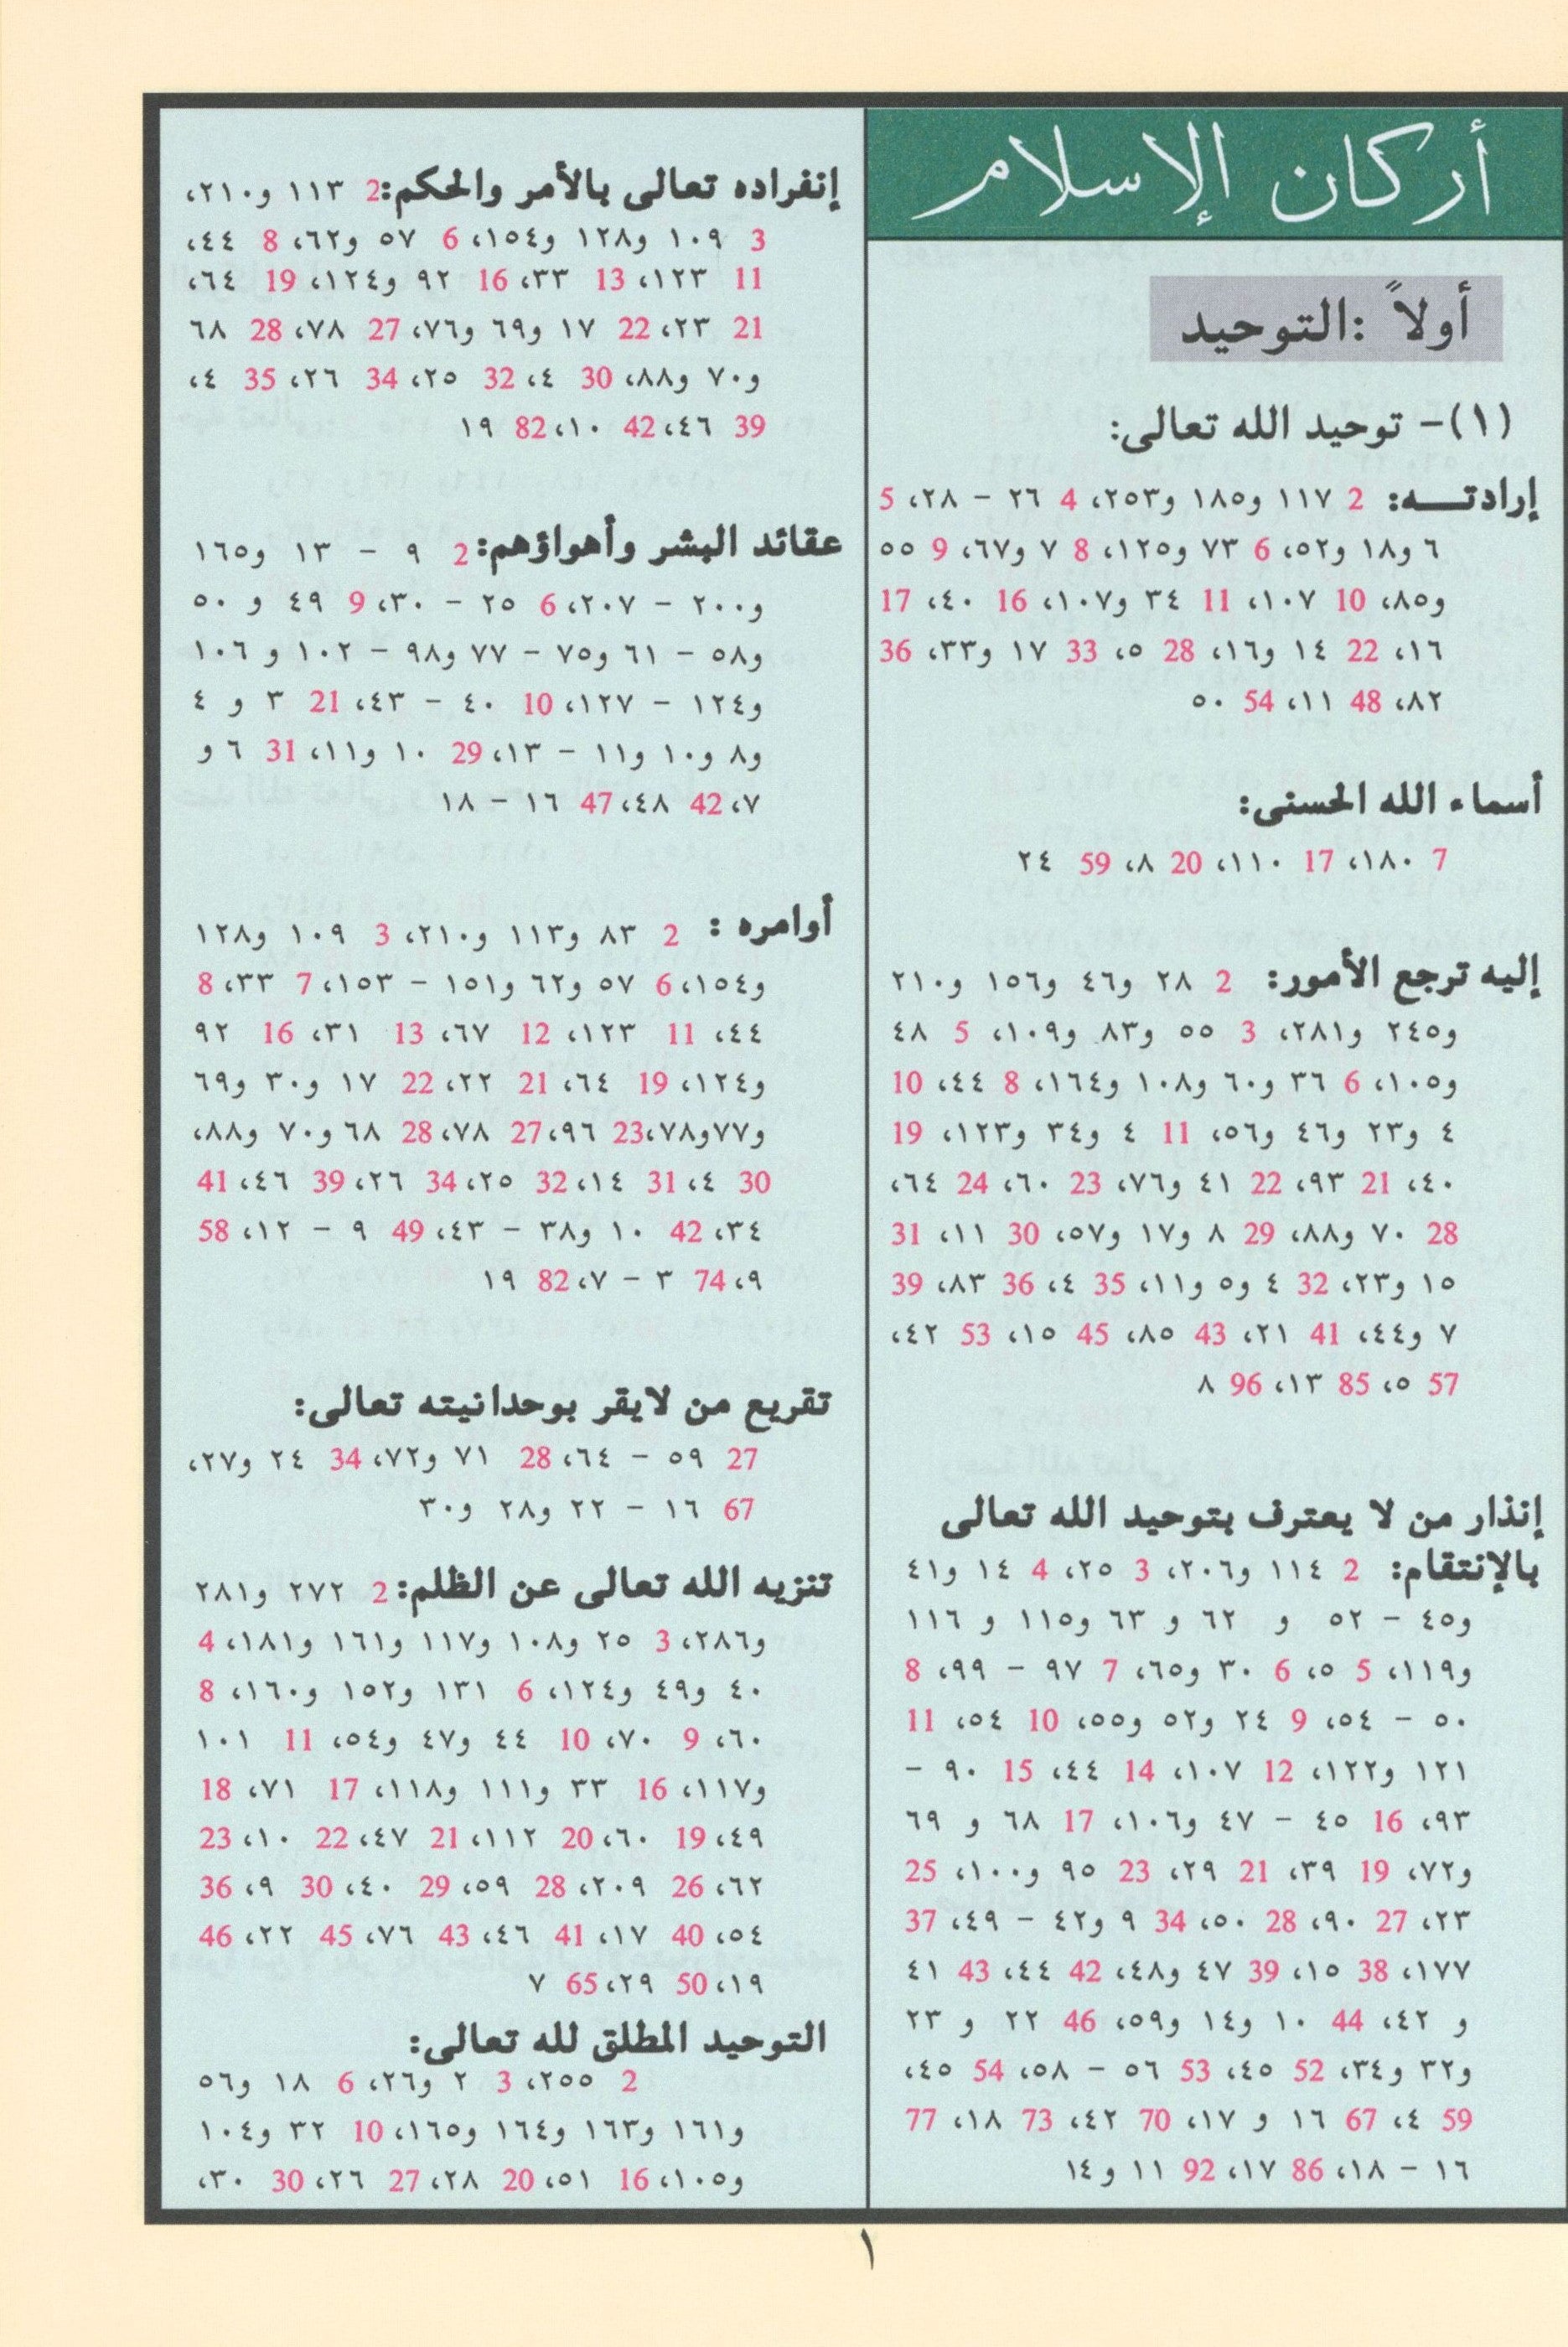 أركان الإسلام
أولاً :التوحيد
(١)- توحيد الله تعالى:
إرادتـــه: 2 ١١٧ و١٨٥ و٢٥٣، 4 ٢٦ - ٢٨، 5
٦ و١٨ و٥٢، 6 ٧٣ و١٢٥، 8 ٧ و٦٧، 9 ٥٥
و٨٥، 10 ١٠٧، 11 ٣٤ و١٠٧، 16 ٤٠، 17
١٦، 22 ١٤ و١٦، 28 ٥، 33 ١٧ و٣٣، 36
٨٢، 48 ١١، 54 ٥٠
أسماء الله الحسنى:
7 ١٨٠، 17 ١١٠، 20 ٨، 59 ٢٤
إليه ترجع الأمور: 2 ٢٨ و٤٦ و١٥٦ و٢١٠
و٢٤٥ و٢٨١، 3 ٥٥ و٨٣ و١٠٩، 5 ٤٨
و١٠٥، 6 ٣٦ و٦٠ و١٠٨ و١٦٤، 8 ٤٤، 10
٤ و٢٣ و٤٦ و٥٦، 11 ٤ و٣٤ و١٢٣، 19
٤٠، 21 ٩٣، 22 ٤١ و٧٦، 23 ٦٠، 24 ٦٤،
28 ٧٠ و٨٨، 29 ٨ و١٧ و٥٧، 30 ١١، 31
١٥ و٢٣، 32 ٤ و٥ و١١، 35 ٤، 36 ٨٣، 39
٧ و٤٤، 41 ٢١، 43 ٨٥، 45 ١٥، 53 ٤٢،
57 ٥، 85 ١٣، 96 ٨
إنذار من لا يعترف بتوحيد الله تعالى
بالإنتقام: 2 ١١٤ و٢٠٦، 3 ٢٥، 4 ١٤ و٤١
و٤٥ - ٥٢ و ٦٢ و ٦٣ و١١٥ و ١١٦
و١١٩، 5 ٥، 6 ٣٠ و٦٥، 7 ٩٧ - ٩٩، 8
٥٠ - ٥٤، 9 ٢٤ و٥٢ و٥٥، 10 ٥٤، 11
١٢١ و١٢٢، 12 ١٠٧، 14 ٤٤، 15 ٩٠ -
٩٣، 16 ٤٥ - ٤٧ و١٠٦، 17 ٦٨ و ٦٩
و٧٢، 19 ٣٩، 21 ٢٩، 23 ٩٥ و١٠٠، 25
٢٣، 27 ٩٠، 28 ٥٠، 34 ٩ و٤٢ - ٤٩، 37
١٧٧، 38 ١٥، 39 ٤٧ و٤٨، 42 ٤٤، 43 ٤١
و ٤٢، 44 ١٠ و١٤ و٥٩، 46 ٢٢ و ٢٣
و٣٢ و٣٤، 52 ٤٥، 53 ٥٦ - ٥٨، 54 ٤٥،
59 ٤، 67 ١٦ و ١٧، 70 ٤٢، 73 ١٨، 77
١٦ - ١٨، 86 ١٧، 92 ١١ و١٤
إنفراده تعالى بالأمر والحكم:2 ١١٣ و٢١٠،
3 ١٠٩ و١٢٨ و١٥٤، 6 ٥٧ و٦٢، 8 ٤٤،
11 ١٢٣، 13 ٣٣، 16 ٩٢ و١٢٤، 19 ٦٤،
21 ٢٣، 22 ١٧ و٦٩ و٧٦، 27 ٧٨، 28 ٦٨
و٧٠ و٨٨، 30 ٤، 32 ٢٥، 34 ٢٦، 35 ٤،
39 ٤٦، 42 ١٠، 82 ١٩
عقائد البشر وأهواؤهم:2 ٩ - ١٣ و١٦٥
و٢٠٠ - ٢٠٧، 6 ٢٥ - ٣٠، 9 ٤٩ و ٥٠
و٥٨ - ٦١ و٧٥ - ٧٧ و٩٨ - ١٠٢ و ١٠٦
و١٢٤ - ١٢٧، 10 ٤٠ - ٤٣، 21 ٣ و ٤
و٨ و١٠ و١١ - ١٣، 29 ١٠ و١١، 31 ٦ و
٧، 42 ٤٨، 47 ١٦ - ١٨
أوامره : 2 ٨٣ و١١٣ و٢١٠، 3 ١٠٩ و١٢٨
و١٥٤، 6 ٥٧ و٦٢ و١٥١ - ١٥٣، 7 ٣٣، 8
٤٤، 11 ١٢٣، 12 ٦٧، 13 ٣١، 16 ٩٢
و١٢٤، 19 ٦٤، 21 ٢٢، 22 ١٧ و٣٠ و٦٩
و٧٧و٧٨، 23 ٩٦، 27 ٧٨، 28 ٦٨ و٧٠ و٨٨،
30 ٤، 31 ١٤، 32 ٢٥، 34 ٢٦، 39 ٤٦، 41
٣٤، 42 ١٠ و٣٨ - ٤٣، 49 ٩ - ١٢، 58
٩، 74 ٣ - ٧، 82 ١٩
تقريع من لايقر بوحدانيته تعالى:
27 ٥٩ - ٦٤، 28 ٧١ و٧٢، 34 ٢٤ و٢٧،
67 ١٦ - ٢٢ و٢٨ و٣٠
تنزيه الله تعالى عن الظلم:2 ٢٧٢ و٢٨١
و٢٨٦، 3 ٢٥ و١٠٨ و١١٧ و١٦١ و١٨١، 4
٤٠ و٤٩ و١٢٤، 6 ١٣١ و١٥٢ و١٦٠، 8
٦٠، 9 ٧٠، 10 ٤٤ و٤٧ و٥٤، 11 ١٠١
و١١٧، 16 ٣٣ و١١١ و١١٨، 17 ٧١، 18
٤٩، 19 ٦٠، 20 ١١٢، 21 ٤٧، 22 ١٠، 23
٦٢، 26 ٢٠٩، 28 ٥٩، 29 ٤٠، 30 ٩، 36
٥٤، 40 ١٧، 41 ٤٦، 43 ٧٦، 45 ٢٢، 46
١٩، 50 ٢٩، 65 ٧
التوحيد المطلق لله تعالى:
2 ٢٥٥، 3 ٢ و٢٦، 6 ١٨ و٥٦
و١٦١ و١٦٣ و١٦٤ و١٦٥، 10 ٣٢ و١٠٤
و١٠٥، 16 ٥١، 20 ٢٨، 27 ٢٦، 30 ٣٠،
١